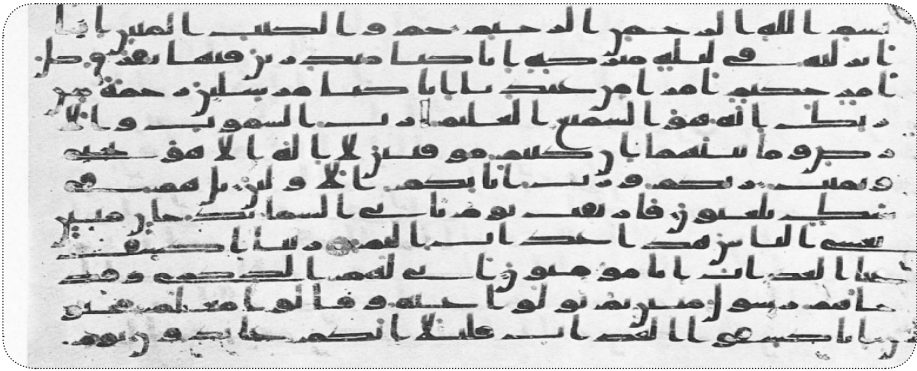 بسم الله الرحمن الرحيم حم والكتب المبين انا ا
نزلنه في ليلة مبركة انا كنا منذرين فيها يفرق كل
امر حكيم امرا من عندنا انا كنا مرسلين رحمة من
ربك انه هو السميع العليم رب السموت والا
رض وما بينهما ان كنتم موقنين لا اله الا هو يحيي
ويميت ربكم ورب ابائكم الاولين بل هم في
شك يلعبون فارتقب يوم تاتي السما بدخان مبين
يغشى الناس هذا عذاب اليم ربنا اكشف
عنا العذاب انا مومنون انى لهم الذكرى وقد
جاهم رسول مبين ثم تولوا عنه وقالوا معلم مجنون
انا كاشفوا العذاب قليلا انكم عايدون يوم